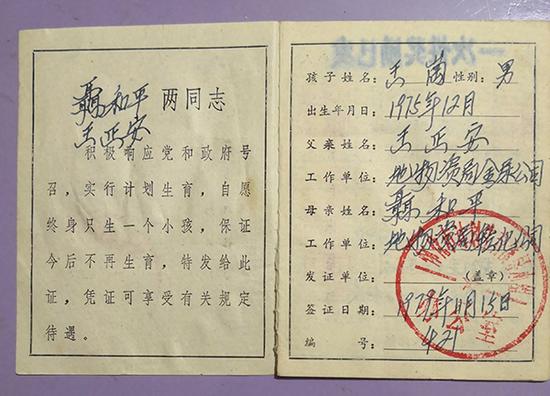 聂和平 两同志
王正安
积极响应党和政府号
召，实行计划生育，自愿
终身只生一个小孩，保证
今后不再生育，特发给此
证，凭证可享受有关规定
待遇。
孩子姓名：王 性别：男
出生年月日：1975年12月
父亲姓名：王正安
工作单位：地物资局金属公司
母亲姓名：聂和平
工作单位：地物资局 公司
发证单位： （盖章）
签证日期：1979年11月15日
编 号：421